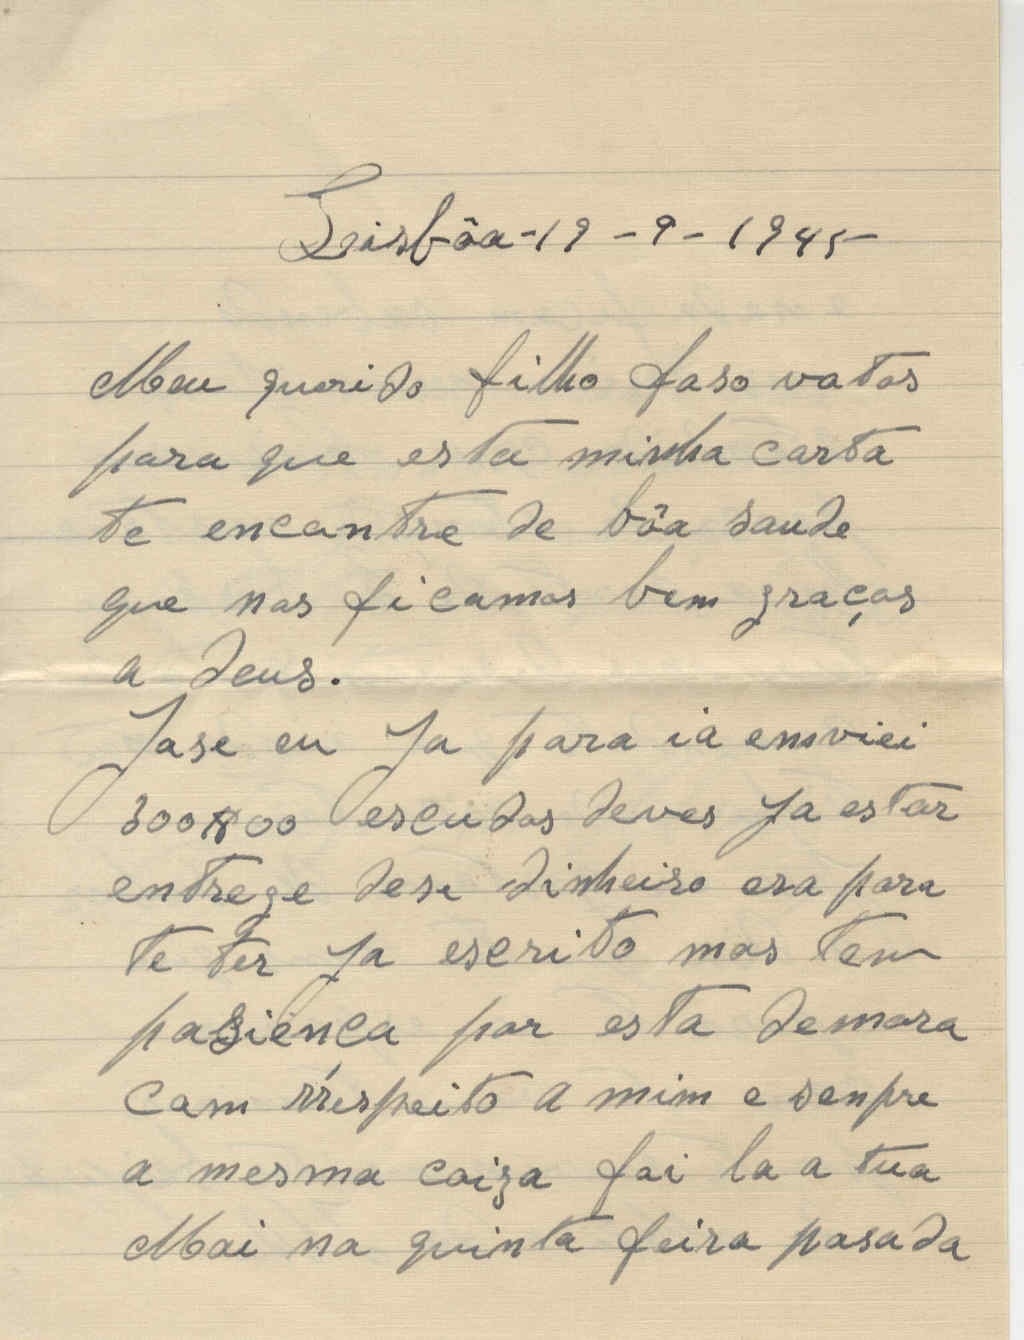 Lisbôa-19-9-1945-
Meu querido filho faso votos
para que esta minha carta
te encontre de bôa saude
que nos ficamos bem graças
a Deus.
Jose eu Ja para ia emviei
300$00 escudos deves Ja estar
entrege dese dinheiro era para
te ter Ja escrito mas tem
pasienca por esta demora
com rrespeito a mim e senpre
a mesma coiza foi la a tua
Mai na quinta feira pasada